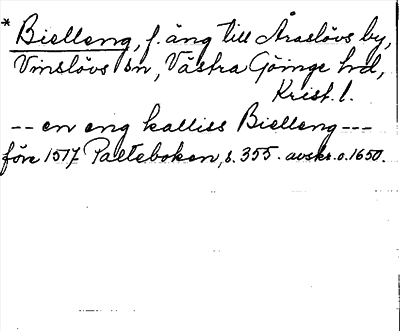 * Bielleng, f. äng till Åraslövs by,
Vinslövs sn, Västra Göinge hd,
Krist. l.
-- en eng kalliss Bielleng ---
före 1517 Palteboken, s. 355. avskr. o. 1650.